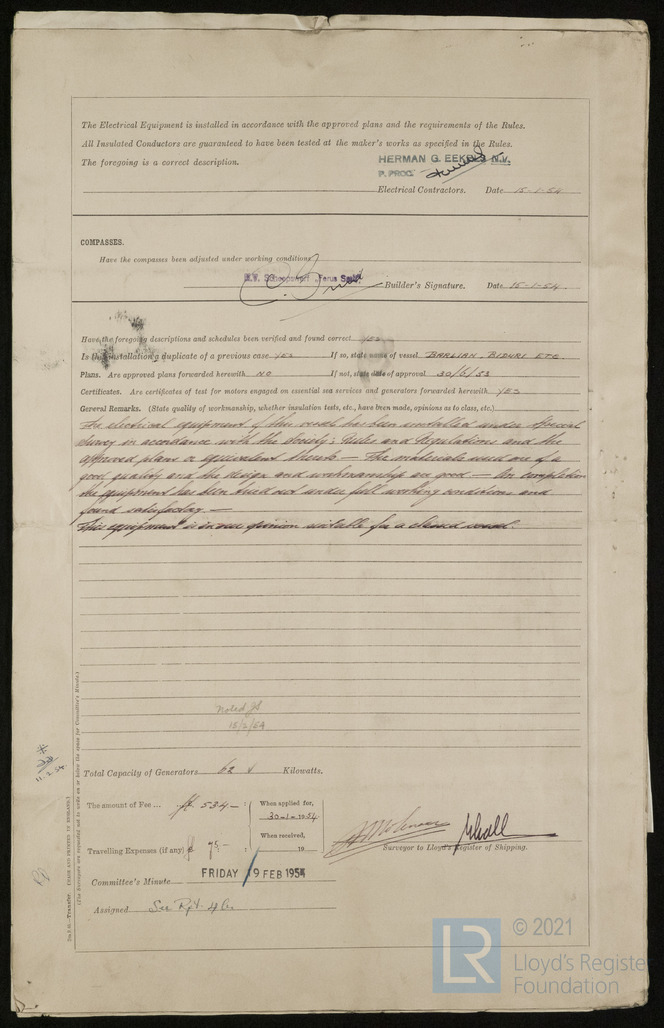 The Electrical Equipment is installed in accordance with the approved plans and the requirements of the Rules.
All Insulated Conductors are guaranteed to have been tested at the maker's works as specified in the Rules.
The foregoing is a correct description.
HERMAN G. EEKELS N.V.
P. PROC
Electrical Contractors. Date 15-1-54
COMPASSES.
Have the compasses been adjusted under working conditions
N.V. Scheepswerf
Builder's Signature. Date 15-1-54.
Have the foregoing descriptions and schedules been verified and found correct yes
Is this installation a duplicate of a previous case YES If so, state name of vessel BARLIAN, BIDURI ETC.
Plans. Are approved plans forwarded herewith NO If not, state date of approval 30/6/53
Certificates. Are certificates of test for motors engaged on essential sea services and generators forwarded herewith YES
General Remarks. (State quality of workmanship, whether insulation tests, etc., have been made, opinions as to class, etc.)
The electrical equipment of this vessel has been installed under special
survey in accordance with the Society's Rules and Regulations and the
approved plans or equivalent thereto — The materials used are of a
good quality and the design and workmanship are good — On completion
the equipment has been tried out under full working conditions and
found satisfactory —
This equipment is in our opinion suitable for a classed vessel.
Noted
15/2/54
11.2.54
Total Capacity of Generators 62 Kilowatts.
The amount of Fee ... fl 534— : When applied for,
30-1-1954
When received,
Travelling Expenses (if any) £ 75,— : 19
Surveyor to Lloyd's Register of Shipping.
Committee's Minute FRIDAY 19 FEB 1954
Assigned See Rpt. 4b.
(The Surveyors are requested not to write on or below the space for Committee's Minute.)
Transfer. (MADE AND PRINTED IN ENGLAND.)
LR
© 2021
Lloyd's Register
Foundation